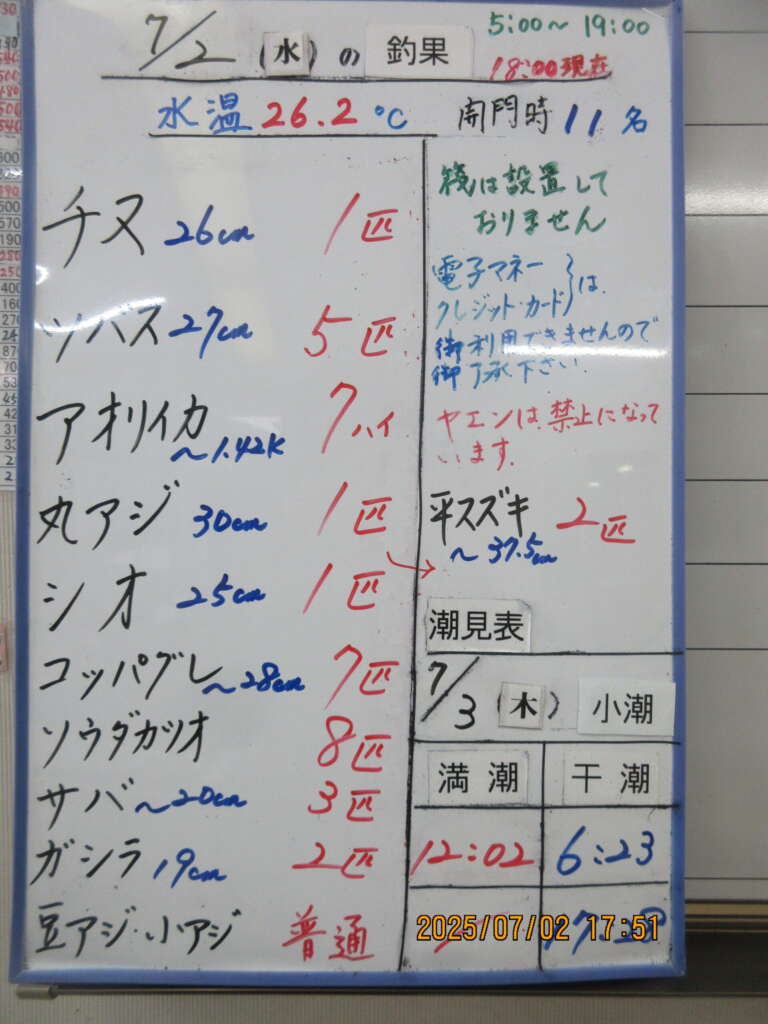 7/2 (水) の 釣果
5:00〜19:00
18:00現在
水温 26.2 ℃
開門時 11名
チヌ 26cm 1匹
ツバス 27cm 5匹
アオリイカ 〜1.42K 7ハイ
丸アジ 30cm 1匹
シオ 25cm 1匹
コッパグレ 〜28cm 7匹
ソウダカツオ 8匹
サバ 〜20cm 3匹
ガシラ 19cm 2匹
豆アジ・小アジ 普通
筏は設置して
おりません
電子マネー
クレジット・カード}は
御利用できませんので
御了承下さい.
ヤエンは禁止になって
います.
平スズキ 2匹
〜37.5cm
潮見表
7/3 (木) 小潮
満潮 干潮
12:02 6:23
2025/07/02 17:51